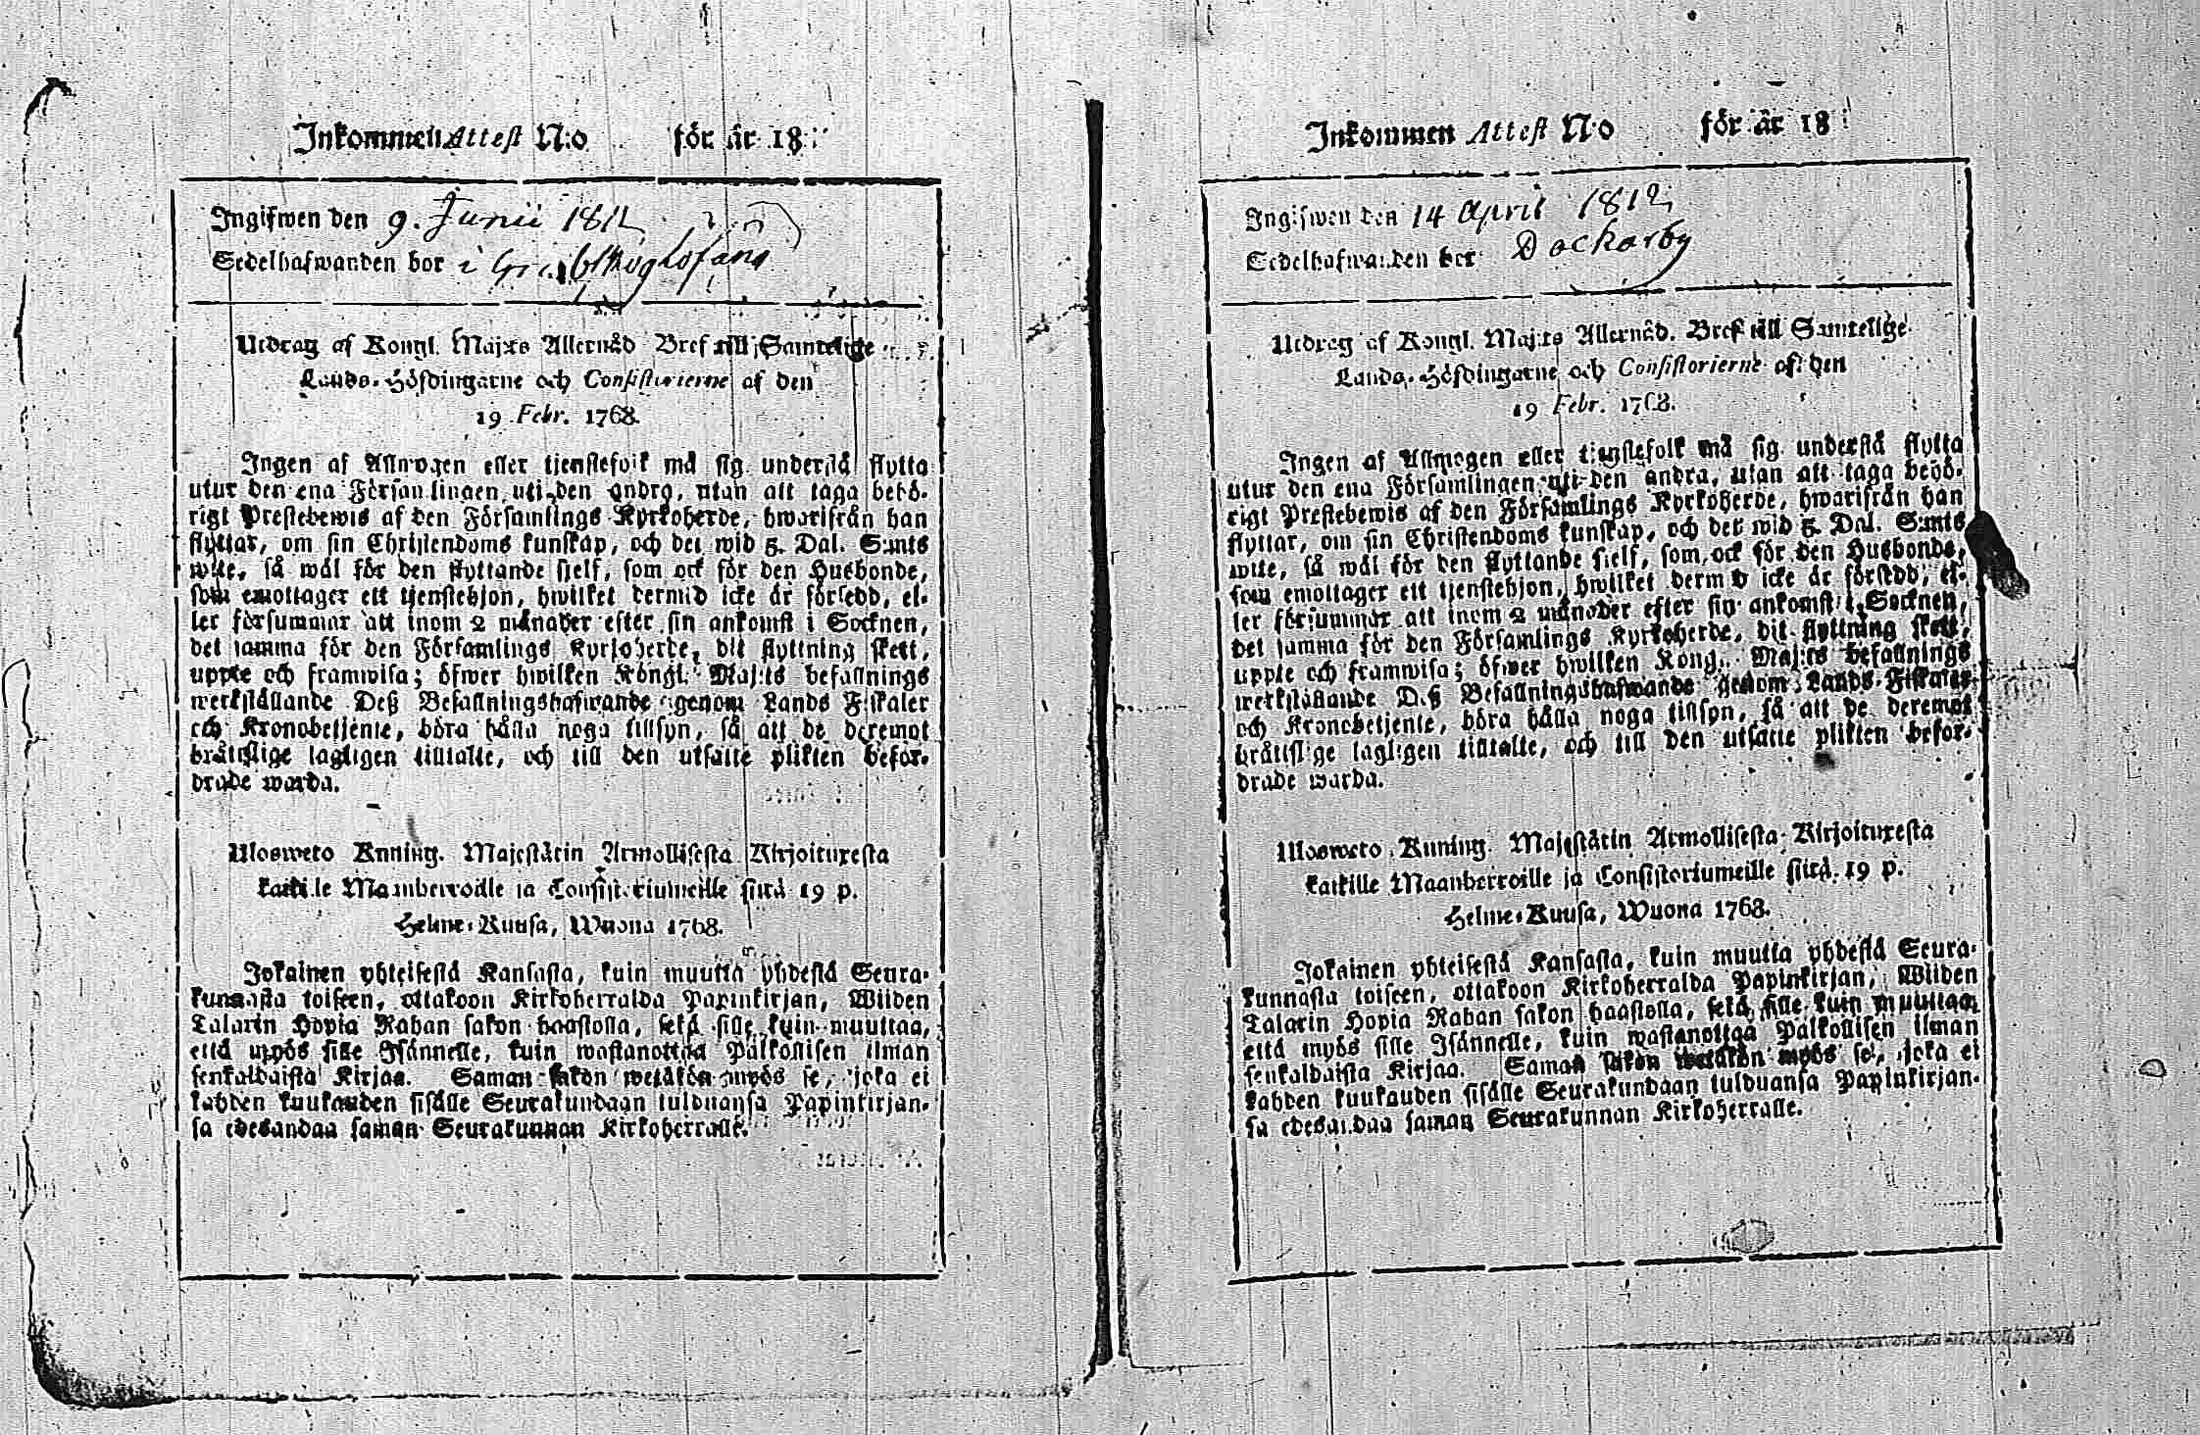 Inkommen Attest N:o för år 18
Ingifwen den 9. Junii 1812
Sedelhafwanden bor i
Utdrag af Kongl. Maj:ts Allernåd Bref till Samtelige
Lands-Höfdingarne och Consistorierne af den
19 Febr. 1768.
Ingen af Allmogen eller tjenstefolk må sig understå flytta
utur den ena Församlingen uti den andra, utan att taga behö-
rigt Prestebewis af den Församlings Kyrkoherde, hwarifrån han
flyttar, om sin Christendoms kunskap, och det wid 5. Dal. S:mts
wite, så wäl för den flyttande sjelf, som ock för den Husbonde,
som emottager ett tjenstehjon, hwilket dermed icke är försedd, el-
ler försummar att inom 2 månader efter sin ankomst i Socknen,
det samma för den Församlings Kyrkoherde, dit flyttning skett,
uppte och framwisa; öfwer hwilken Kongl. Maj:ts befallnings
werkställande Deß Befallningshafwande genom Lands Fiskaler
och Kronobetjente, böra hålla noga tillsyn, så att de deremot
bråttslige lagligen tilltalte, och till den utsatte plikten beför-
drade warda.
Ulosweto Kuning. Majestätin Armollisesta Kirjoituxesta
kaikille Maanherroille ja Consistoriumeille siitä 19 p.
Helme-Kuusa, Wuona 1768.
Jokainen yhteisestä Kansasta, kuin muutta yhdestä Seura-
kunnasta toiseen, ottakoon Kirkoherralda Papinkirjan, Wiiden
Talarin Hopia Rahan sakon haastolla, sekä sille kuin muuttaa,
että myös sille Isännelle, kuin wastanottaa Palkollisen ilman
senkaldaista Kirjaa. Saman sakon wetäkön myös se, joka ei
kahden kuukauden sisälle Seurakundaan tulduansa Papinkirjan-
sa edesandaa saman Seurakunnan Kirkoherralle.
Inkommen Attest N:o för år 18
Ingifwen den 14 April 1812
Sedelhafwanden bor Dackarby
Utdrag af Kongl. Maj:ts Allernåd. Bref till Samtelige
Lands-Höfdingarne och Consistorierne af den
19 Febr. 1768.
Ingen af Allmogen eller tjenstefolk må sig understå flytta
utur den ena Församlingen uti den andra, utan att taga behö-
rigt Prestebewis af den Församlings Kyrkoherde, hwarifrån han
flyttar, om sin Christendoms kunskap, och det wid 5. Dal. S:mts
wite, så wäl för den flyttande sjelf, som ock för den Husbonde,
som emottager ett tjenstehjon, hwilket dermed icke är försedd, el-
ler försummar att inom 2 månader efter sin ankomst i Socknen,
det samma för den Församlings Kyrkoherde, dit flyttning skett,
uppte och framwisa; öfwer hwilken Kongl. Maj:ts befallnings
werkställande Deß Befallningshafwande genom Lands Fiskaler
och Kronobetjente, böra hålla noga tillsyn, så att de deremot
bråttslige lagligen tilltalte, och till den utsatte plikten beför-
drade warda.
Ulosweto Kuning. Majestätin Armollisesta Kirjoituxesta
kaikille Maanherroille ja Consistoriumeille siitä 19 p.
Helme-Kuusa, Wuona 1768.
Jokainen yhteisestä Kansasta, kuin muutta yhdestä Seura-
kunnasta toiseen, ottakoon Kirkoherralda Papinkirjan, Wiiden
Talarin Hopia Rahan sakon haastolla, sekä sille kuin muuttaa
että myös sille Isännelle, kuin wastanottaa Palkollisen ilman
senkaldaista Kirjaa. Saman sakon wetäkön myös se, joka ei
kahden kuukauden sisälle Seurakundaan tulduansa Papinkirjan-
sa edesandaa saman Seurakunnan Kirkoherralle.